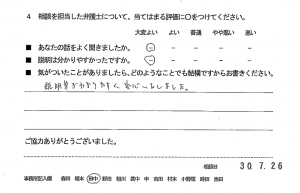 4 相談を担当した弁護士について、当てはまる評価に○をつけてください。
大変よい よい 普通 やや悪い 悪い
■ あなたの話をよく聞きましたか。
■ 説明は分かりやすかったですか。
■ 気がついたことがありましたら、どのようなことでも結構ですからお書きください。
説明がわかりやすく安心しました。
ご協力ありがとうございました。
相談日 30.7.26
事務所記入欄 森田 榎本 田中